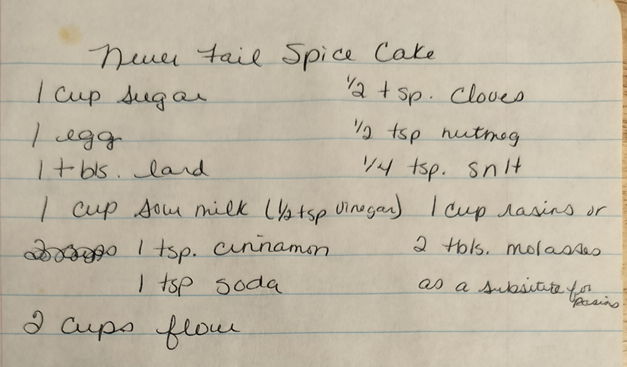 Never Fail Spice Cake
1 cup sugar
1 egg
1 tbls. lard
1 cup sour milk (1/2 tsp vinegar)
1 tsp. cinnamon
1 tsp soda
2 cups flour
1/2 tsp. cloves
1/2 tsp nutmeg
1/4 tsp. salt
1 cup rasins or
2 tbls. molasses
as a subsitute for
rasins